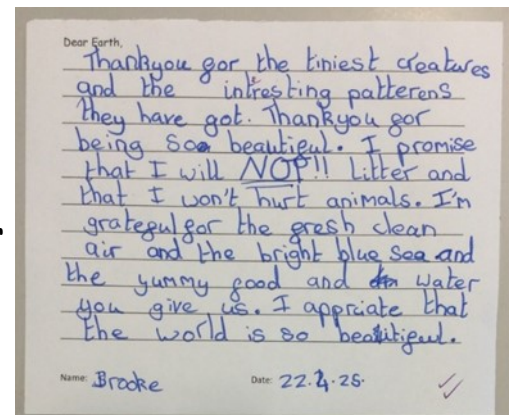 Dear Earth,
Thankyou for the tiniest creatures
and the intresting patterens
they have got. Thankyou for
being so beautiful. I promise
that I will NOT!! Litter and
that I won't hurt animals. I'm
grateful for the fresh clean
air and the bright blue sea and
the yummy food and water
you give us. I appriciate that
the world is so beautiful.
Name: Brooke Date: 22.4.25.